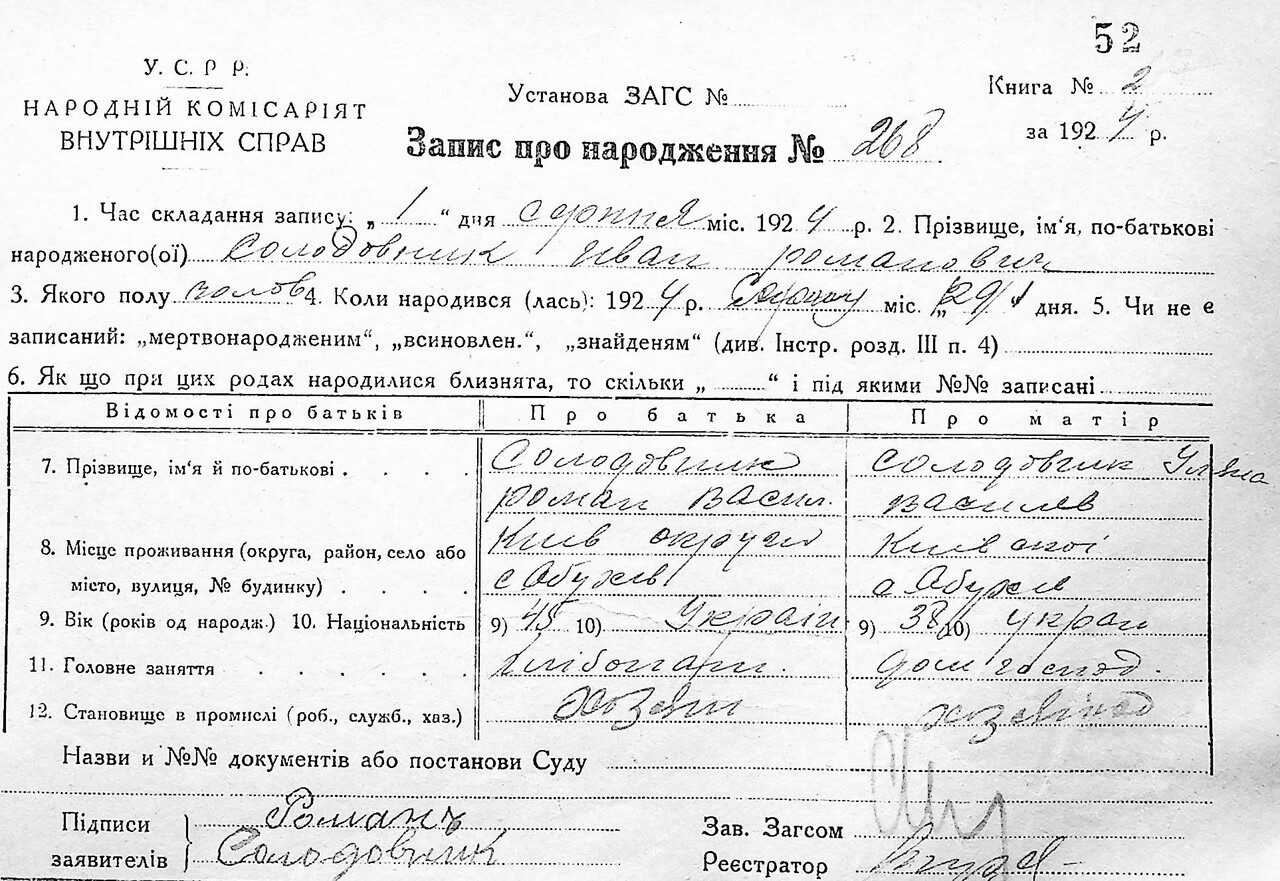 52
У. С. Р Р.
НАРОДНІЙ КОМІСАРІЯТ
ВНУТРІШНІХ СПРАВ
Установа ЗАГС №
Книга № 2
за 1924 р.
Запис про народження № 268
1. Час складання запису: „ 1 “ дня серпня міс. 1924 р. 2. Прізвище, ім'я, по-батькові
народженого(ої) Солодовник Иван романович
3. Якого полу чолов 4. Коли народився (лась): 1924 р. міс. „ дня. 5. Чи не є
записаний: „мертвонародженим“, „всиновлен.“, „знайденям“ (див. Інстр. розд. III п. 4)
6. Як що при цих родах народилися близнята, то скільки „ “ і під якими №№ записані
Відомості про батьків Про батька Про матір
7. Прізвище, ім'я й по-батькові . . . . Солодовник солодовник Уляна
роман Васил. василев
8. Місце проживання (округа, район, село або Київ округи Київ скої
місто, вулиця, № будинку) . . . . с Обухів с Обухів
9. Вік (років од народж.) 10. Національність 9) 45 10) Україн 9) 38 10) украї
11. Головне заняття . . . . . . хлібопаш. дом господ.
12. Становище в промислі (роб., служб., хаз.) Хозяин
Назви и №№ документів або постанови Суду
Підписи заявителів Романъ
Солодовник
Зав. Загсом
Реєстратор